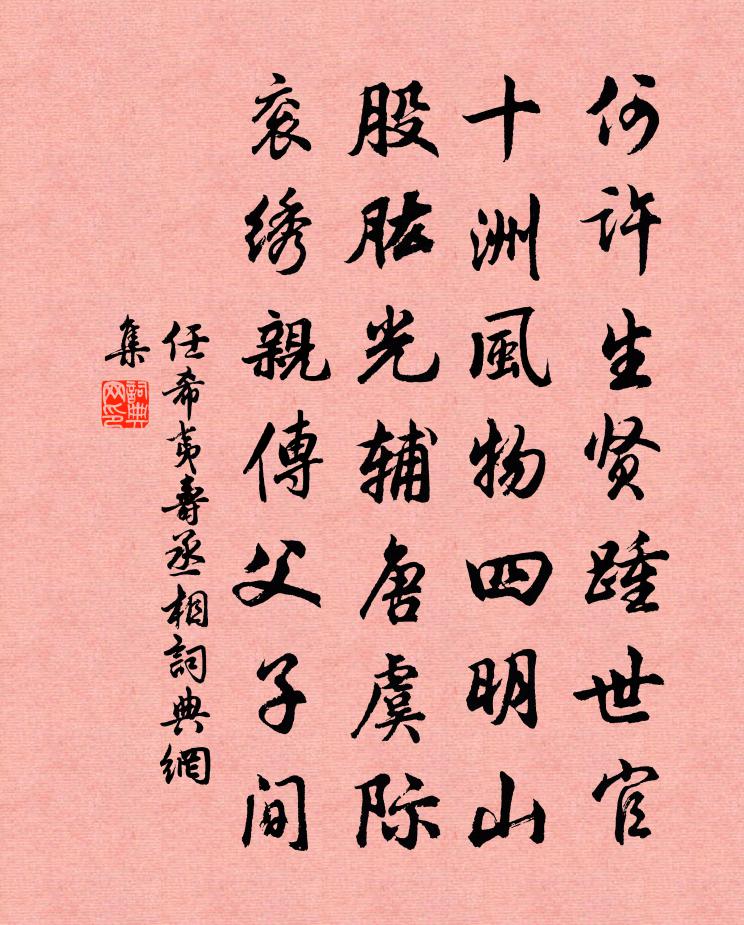 何许生贤踵世官
十洲風物四明山
股肱光辅唐虞际
衮绣親傳父子间
任希夷壽丞相詞典網
集
詞典網印